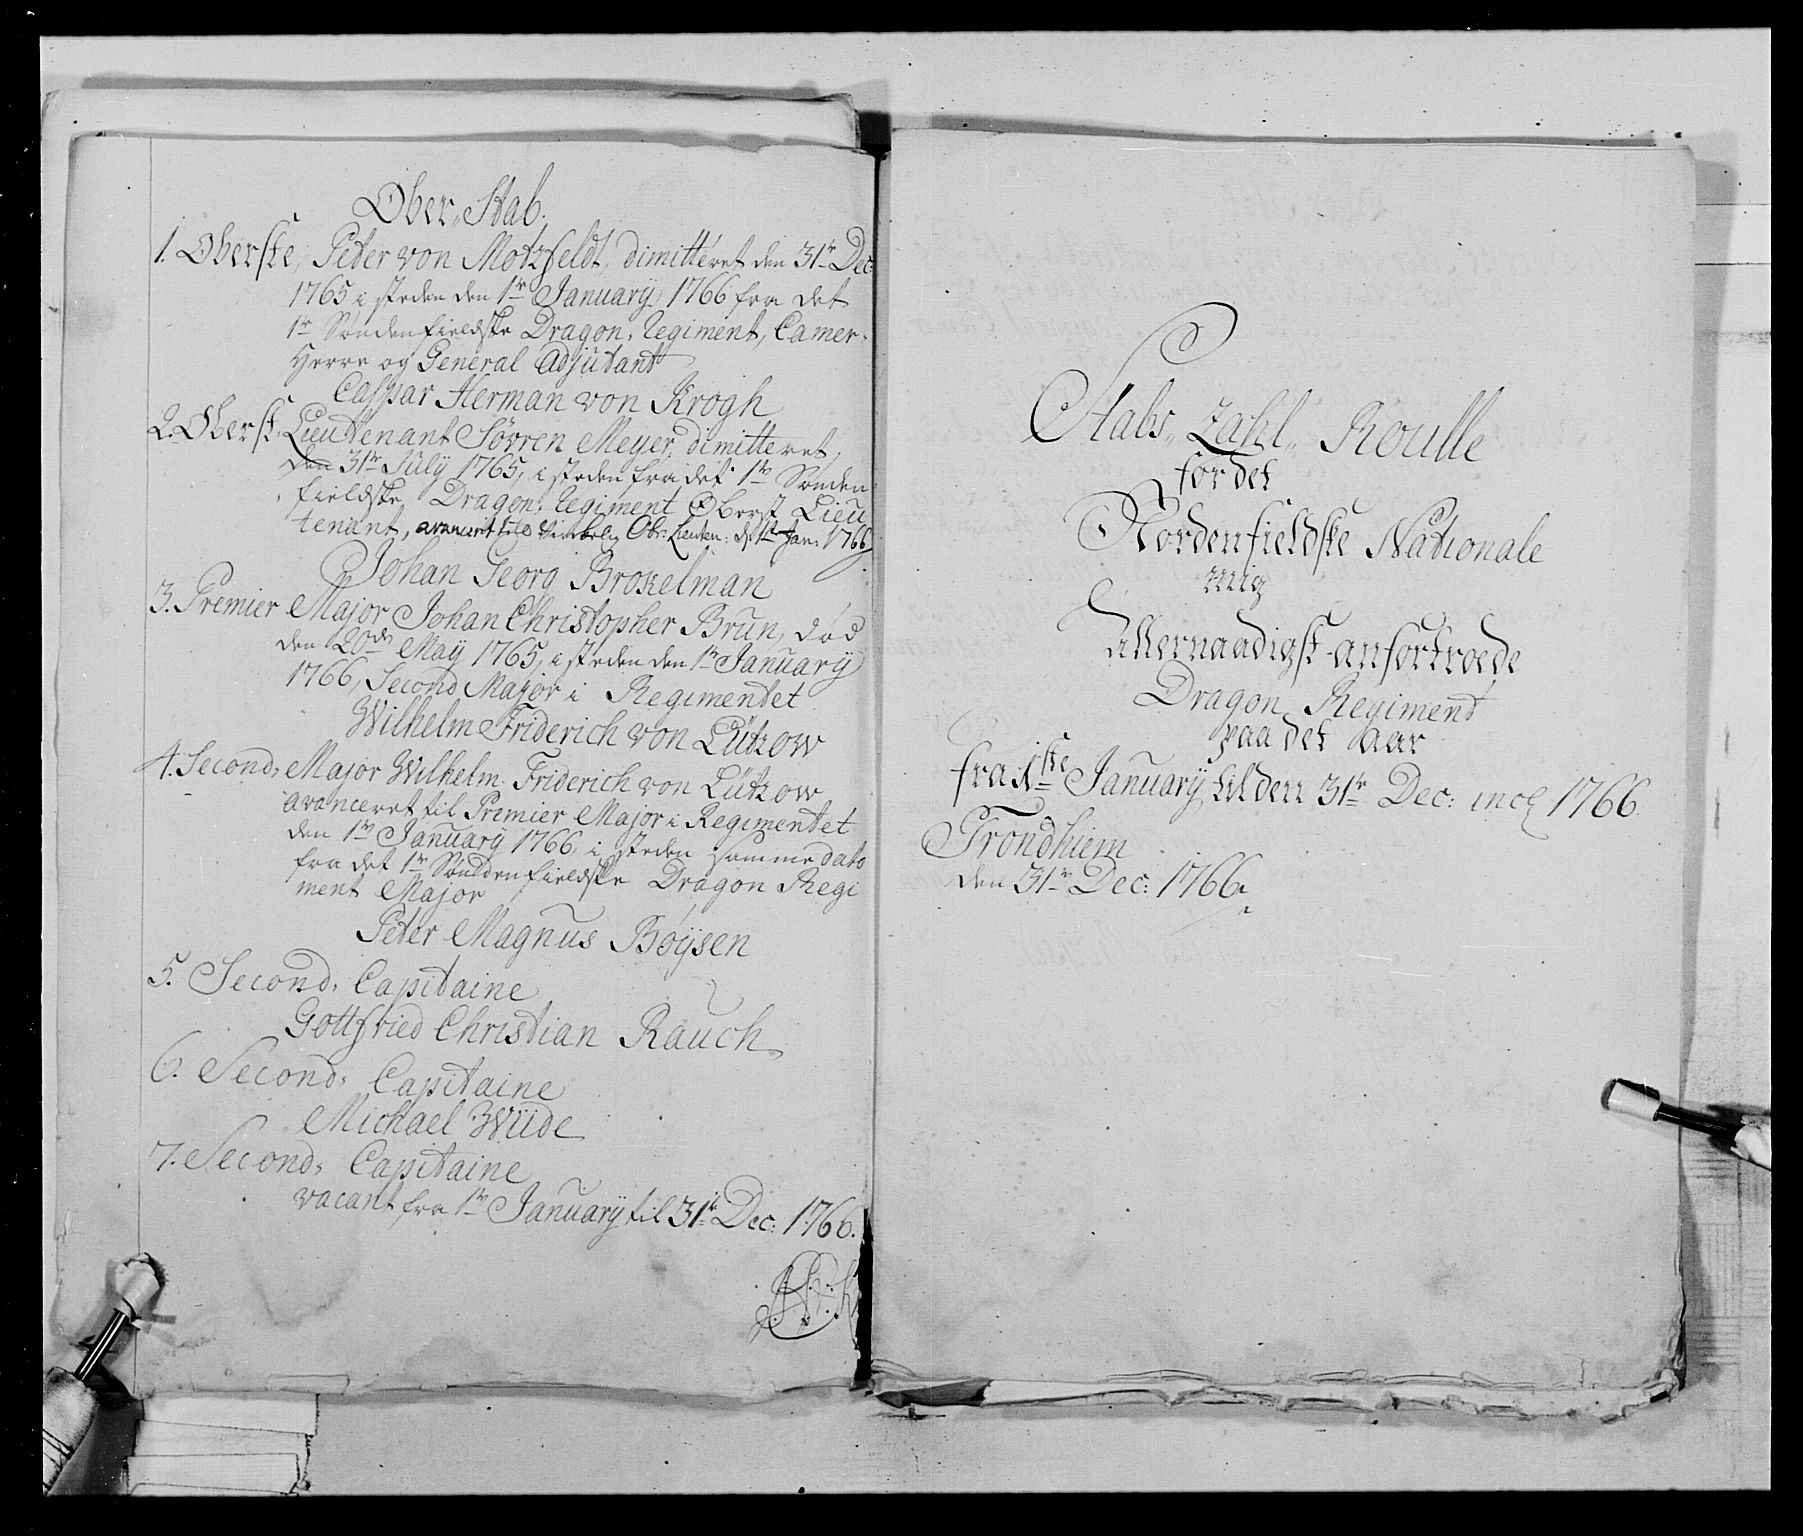 Ober„Stab.
1. Oberste, Peter von Motzfeldt, dimitteret den 31te Dec:
1765 i steden den 1te January 1766 fra det
1te Søndenfieldske Dragon, Regiment, Camer-
Herre og General Adjutant
Caspar Herman von Krogh
2. Oberst, Lieutenant Sørren Meyer, dimitteret,
den 31te July 1765, i steden fra det 1te Sønden
fieldske Dragon, Regiment Oberst Lieu
tenant, avancert til Virkelig Obr: Lieuten: d 1te Jan: 1766
Johan Georg Brokelman
3. Premier Major Johan Christopher Brun, død
den 20de May 1765, i steden den 1te January
1766, Second Major i Regimentet
Wilhelm Friderich von Lützow
4. Second, Major Wilhelm Friderich von Lützow
avanceret til Premier Major i Regimentet
den 1te January 1766, i steden samme dato
fra det 1te Søndenfieldske Dragon Regi
ment Major
Peter Magnus Böysen
5. Second, Capitaine
Gottfried Christian Rauch
6. Second, Capitaine
Michael Wüde
7. Second, Capitaine
vacant fra 1te January til 31te Dec: 1766.
Stabs„Zahl„Roulle
for det
Nordenfieldske Nationale
mig
Allernaadigst anfortroede
Dragon Regiment
paa det aar
fra 1ste January til den 31te Dec: incl 1766.
Trondhiem
den 31te Dec: 1766.